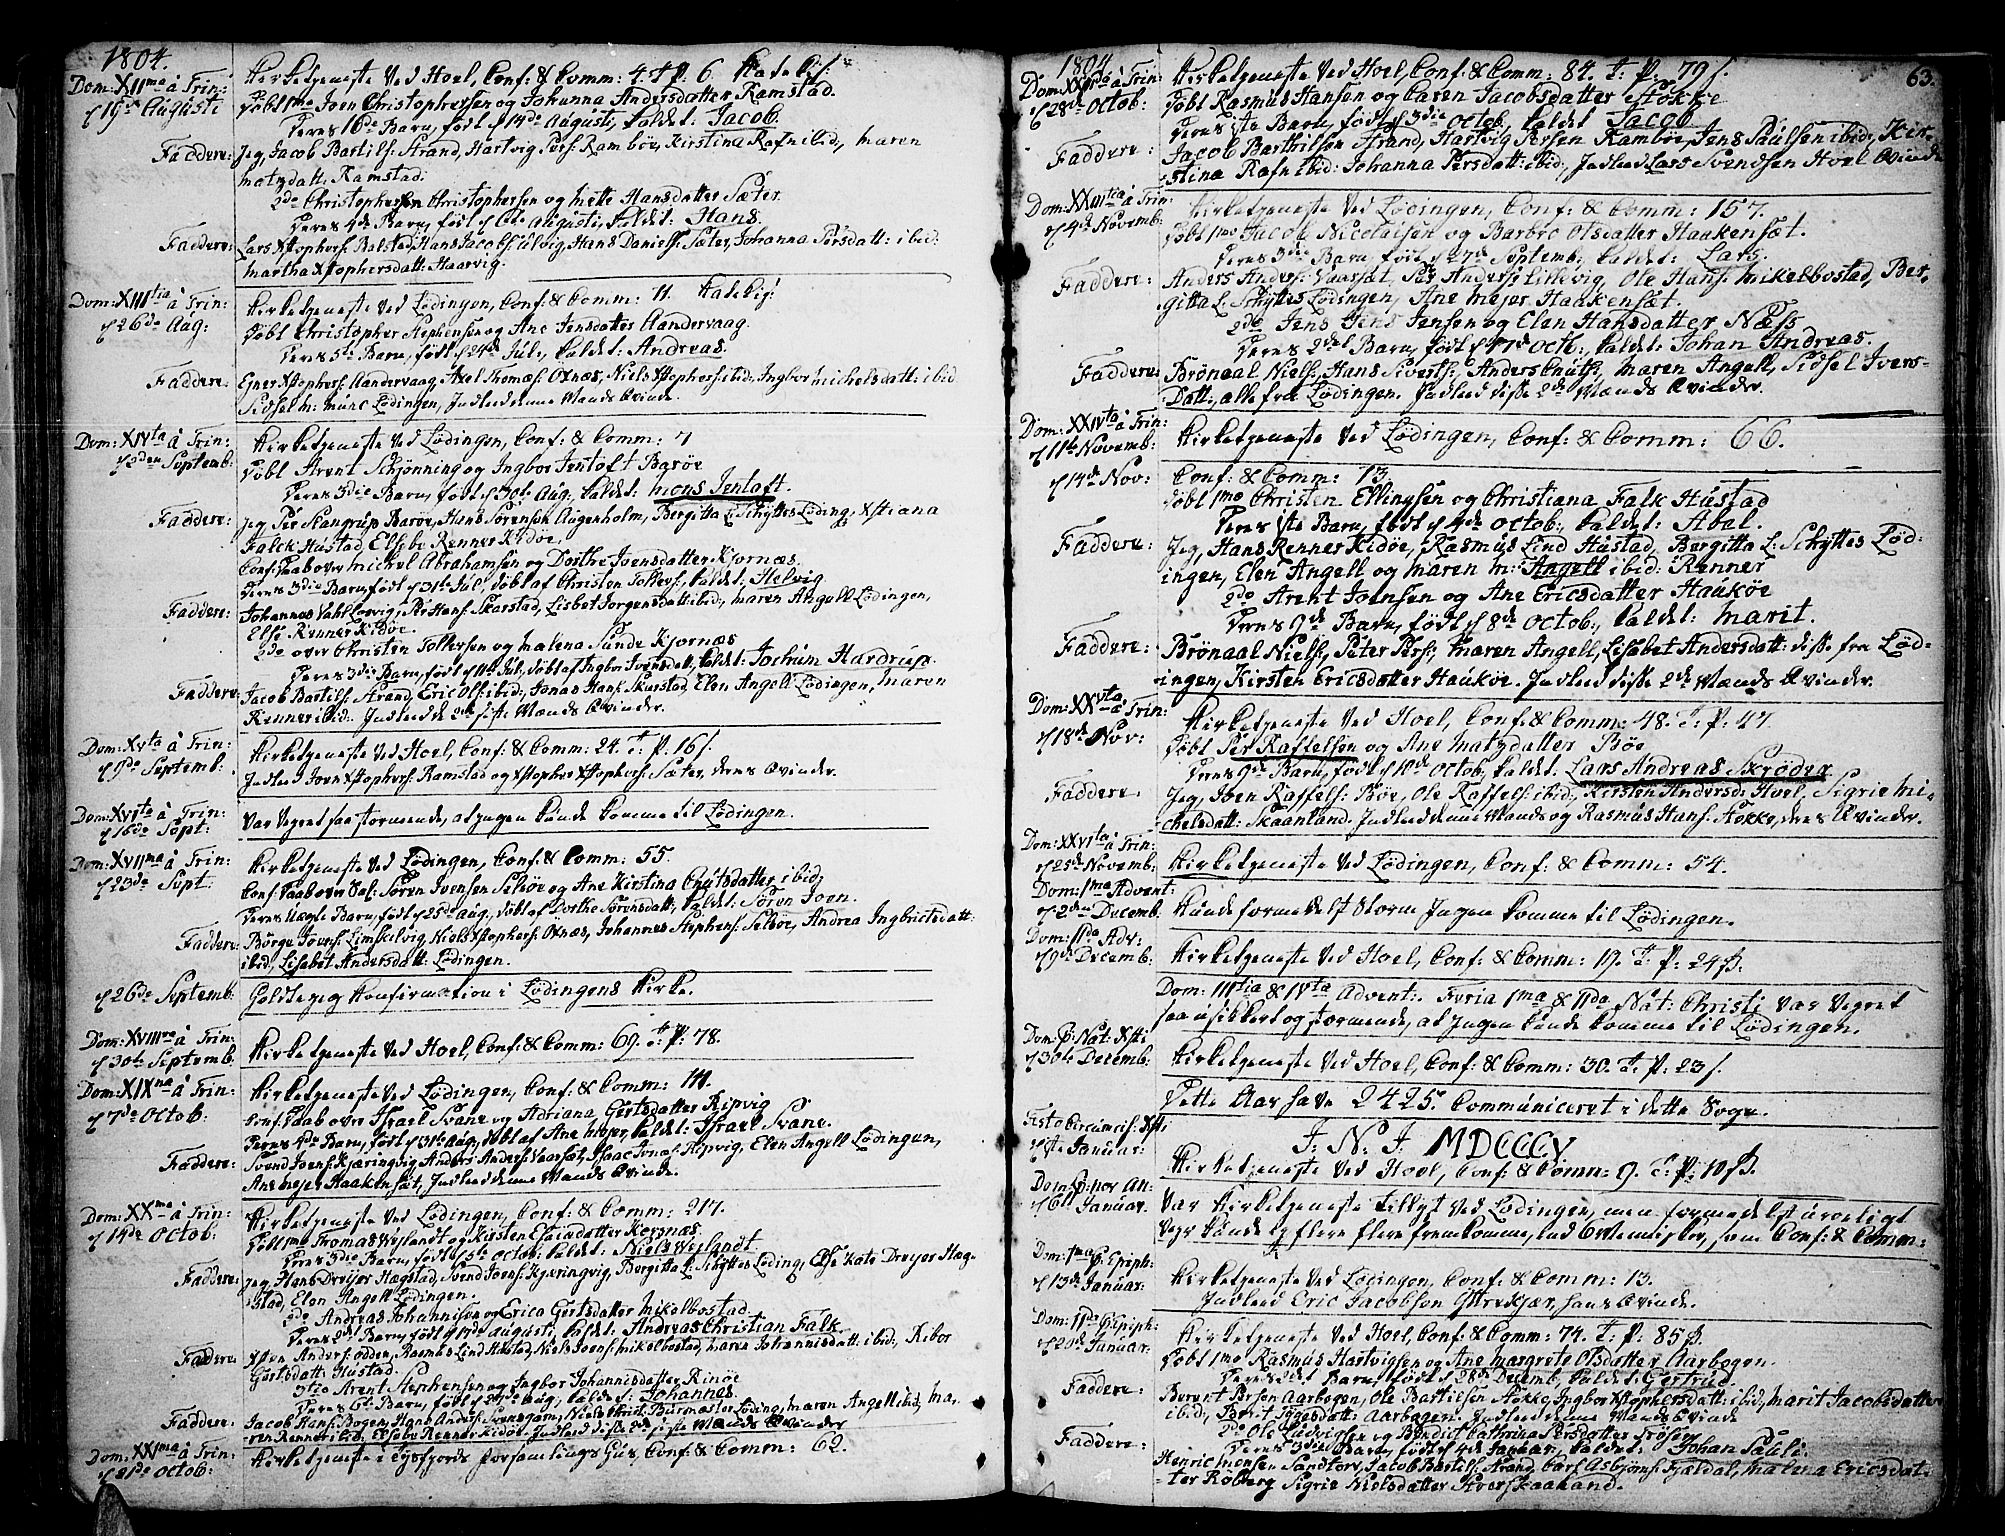 1804.
Dom: XIIma à Trin:
d 19de Augusti
Kirketjeneste ved Hoel, Conf: & Comm: 4. T. P. 6.
Døbt 1mo Joen Christophersen og Johanna Andersdatter Ramstad.
Deres 16de Barn, født d 14de Augusti, kaldet: Jacob.
Faddere: Jeg, Jacob Bartils: Strand, Hartvig Pers: Rambøe, Kirstina Rafn ibid, Maren
Matzdatt: Ramstad.
2do Christophersen og Mette Hansdatter Sæter.
Deres 4de Barn, født d Augusti, kaldet: Hans.
Faddere: Lars Xstophers: Balstad, Hans Jacobs: Ulvig, Hans Daniels: Sæter, Johanna Persdatt: ibid:
Martha Xstophersdatt: Haarvig.
Dom: XIIItia à Trin:
d 26de Aug:
Kirketjeneste ved Lødingen, Conf: & Comm: 11.
Døbt Christopher Stephensen og Ane Jensdatter Aandervaag.
Deres 5te Barn, født d 24de Jul:, kaldet: Andreas.
Faddere: Ejner Xstophers: Aandervaag, Axel Thomæs: Oxnæs, Niels Xstophers: ibid: Ingbor Michelsdatt: ibid
Sidsel M: Munc Lødingen, Indled denne Mands Qvinde.
Dom: XIVta à Trin:
d 2den Septemb:
Kirketjeneste ved Lødingen, Conf: & Comm: 7
Døbt Arent Schjønning og Ingbor Jentoft Barøe
Deres 3die Barn, født d 30te Aug:, kaldet: Mons Jentoft.
Faddere: Jeg, Peer Slangrup Barøe, Hans Sörensen Augenholm, Bergitta L: Schyttes Løding: Xstiana
Falck Hustad, Elsebe Renner Kidøe.
Conf: Daab over Michel Abrahamsen og Dorthe Ivensdatter Kjornæs.
Deres 3die Barn, født d 31te Jul:, døbt af Christen Tollers:, kaldet: Helvig.
Faddere: Johannes Vabl Løvig, Per Hans: Skarstad, Lisbet Jorgensdatt: ibid:, Maren Angell Lødingen,
Else Renner Kidöe.
2do over Christen Tollersen og Malena Sunde Kjornæs
Deres 3die Barn, født d 11te Jul:, døbt af Ingbor Ivensdatt:, kaldet: Jochum Hardrup.
Faddere: Jacob Bartils: Strand, Eric Ols: ibid:, Jonas Hans: Skarstad, Elen Angell Lødingen, Maren
Renner ibid. Indled de 2de sidste Mænds Qvinder.
Dom: XVta à Trin:
d 9de Septemb:
Kirketjeneste ved Hoel, Conf: & Comm: 24. T: P: 16 s.
Indled Joen Xstophers: Ramstad og Xstopher Xstophers: Sæter, deres Qvinder.
Dom: XVIta à
d 16de Sept:
Var Vejret saa stormende, at Ingen kunde komme til Lødingen.
Dom: XVIIma à Trin:
d 23de Sept:
Kirketjeneste ved Lødingen, Conf: & Comm: 55.
Conf: Daab over Sal: Sören Ivensen Selsøe og Ane Kirstina Cnutsdatter ibid,
Deres Uægte Barn, født d 25de Aug:, døbt af Dorthe Sörensdatt:, kaldet: Sören Joen.
Faddere: Börge Ivens: Limskilvig, Niels Xstophers: Oxnæs, Johannes Stephens: Selsöe, Andrea Ingbrictsdatt:
ibid, Lisabet Andersdatt: Lødingen.
d 26de Septemb:
Holdte jeg Konfirmation i Lødingens Kirke.
Dom: XVIIIva à Trin:
d 30te Septemb.
Kirketjeneste ved Hoel, Conf: & Comm: 69. T: P: 78.
Dom: XIXna à Trin:
d 7de Octob:
Kirketjeneste ved Lødingen, Conf: & Comm: 111.
Conf: Daab over Israel Svane og Adriana Gertsdatter Ripvig
Deres 4de Barn, født d 31te Aug:, døbt af Ane Mejer, kaldet: Israel Svane.
Faddere: Svend Ivens: Kjæringvig, Anders Anders: Vaarsæt, Isaac Jonas: Ripvig, Elen Angell Lødingen,
Ane Mejer Haakensæt, Indled denne Mands Qvinde.
Dom: XXma à Trin:
d 14de Octob:
Kirketjeneste ved Lødingen, Conf: & Comm: 217.
Døbt 1mo Thomas Weylandt og Kirsten Elsiædatter Korsnæs.
Deres 3die Barn, født d 5te Octob:, kaldet: Niels Weylandt
Faddere: Jeg, Hans Dreijer Hægstad, Svend Ivens: Kjæringvig, Bergitta L: Schyttes Løding:, Else Kats Dreyer Hæg-
stad, Elen Angell Lødingen.
2do Andreas Johannissen og Erica Gertsdatter Mikelbostad
Deres 2det Barn, født d 17de Augusti, kaldet: Andreas Christian Falk
Faddere: Xsten Anders: Odden, Rasmus Lind Hustad, Niels Ivens: Mikelbostad, Maren Johannisdatt: ibid:, Ribor
Gertsdatt: Hustad.
3tio Arent Stephensen og Ingbor Johannisdatter Rinøe
Deres 6te Barn, født d 27de Aug:, kaldet: Johannes.
Faddere: Jacob Hans: Bogen, Hans Anders: Svensgam, Niels Christ: Burmæster Løding:, Maren Angell ibid, Ma-
ren Renner ibid, Elsebe Renner Kidøe. Indled disse 2de sidste Mænds Qvinder
Dom: XXIma à Trin:
d 21de Octob:
Kirketjeneste i Tysfjords Forsamlings Huus, Conf: & Comm: 62.
1804
63.
Dom: XXIIda à Trin:
d 28de Octob:
Kirketjeneste ved Hoel, Conf: & Comm: 84. T: P: 79 s.
Døbt Rasmus Hansen og Caren Jacobsdatter Stokke
Deres 1ste Barn, født d 3die Octob:, kaldet Jacob
Faddere: Jacob Barthilsen Strand, Hartvig Persen Rambøe, Jens Paulsen ibid:, Kir-
stina Rafn ibid: Johanna Persdatt: ibid:, Indled Lars Svendsen Hoel Qvinde
Dom: XXIIItia à Trin:
d 4de Novemb:
Kirketjeneste ved Lødingen, Conf: & Comm: 157.
Døbt 1mo Jacob Nicolaisen og Barbro Olsdatter Haakensæt.
Deres 3die Barn, født d 27de Septemb:, kaldet: Lars.
Faddere: Anders Anders: Vaarsæt, Per Anders: Lillevig, Ole Hans: Mikelbostad, Ber-
gitta L: Schyttes Lødingen, Ane Mejer Haakensæt.
2do Jens Jensen og Elen Hansdatter Næss
Deres 2det Barn, født d 17de Octb:, kaldet: Johan Andreas.
Faddere: Brönaal Niels:, Hans Siverts:, Anders Cnuts:, Maren Angell, Sidsel Ivers-
Datt:, alle fra Lødingen. Indled disse 2de Mænds Qvinder.
Dom: XXIVta à Trin:
d 11te Novemb:
Kirketjeneste ved Lødingen, Conf: & Comm: 66.
d 14de Nov:
Conf: & Comm: 13.
Døbt 1mo Christen Ellingsen og Christiana Falk Hustad
Deres 1ste Barn, født d 4de Octob:, kaldet: Abal.
Faddere: Jeg, Hans Renner Kidøe, Rasmus Lind Hustad, Bergitta L: Schyttes Lød-
ingen, Elen Angell og Maren M: Angell ibid: Renner
2do Arent Joensen og Ane Ericsdatter Haukøe
Deres 9de Barn, født d 8de Octob:, kaldet: Marit.
Faddere: Brönaal Niels:, Peter Pers:, Maren Angell, Lisabet Andersdatt: disse fra Lød-
ingen, Kirsten Ericsdatter Haukøe. Indled disse 2de Mænds Qvinder.
Dom: XXVta à Trin:
d 18de Nov:
Kirketjeneste ved Hoel, Conf: & Comm: 48. T: P: 47
Døbt Per Raffelsen og Ane Matzdatter Böe
Deres 9de Barn, født d 11te Octob:, kaldet: Lars Andreas Skrøder
Faddere: Jeg, Iven Raffels: Böe, Ole Raffels: ibid:, Kirsten Andersd: Hoel, Sigrie Mi-
chelsdatt: Skaanland. Indled denne Mands og Rasmus Hans: Stokke, deres Qvinder.
Dom: XXVIta à Trin:
d 25de Novemb:
Kirketjeneste ved Lødingen, Conf: & Comm: 54.
Dom: 1ma Advent:
d 2den Decemb.
Kunde formedelst Storm Ingen komme til Lødingen.
Dom: IIda Adv:
d 9de Decemb:
Kirketjeneste ved Hoel, Conf: & Comm: 19. T: P: 24 s.
Dom: IIItia & IVta Advent:. Feria 1ma & IIda Nat: Christi var Vejret
saa usikkert og stormende, at Ingen kunde komme til Lødingen.
Dom: p: Nat: Xsti
d 30te Decemb:
Kirketjeneste ved Hoel, Conf: & Comm: 30. T: P: 23 s.
Dette Aar have 2425. Communiceret i dette Sogn.
J. N. J. MDCCCV
Festo Circumcis: Xsti
d 1ste Januar:
Kirketjeneste ved Hoel, Conf: & Comm: 9. T: P: 10 s.
Dom: p: nov An:
d 6te Januar.
Var Kirketjeneste Tillyst ved Lødingen, men formedelst uroeligt
Vejr kunde ej flere fremkomme, end 6 Mennisker, som Conf: & Comm:
Dom: 1ma p: Epiph:
d 13de Januar:
Kirketjeneste ved Lødingen, Conf: & Comm: 13.
Indled Eric Jacobsen Ottrekjær, hans Qvinde.
Dom: IIda Epiph:
d 20de Januar:
Kirketjeneste ved Hoel, Conf: & Comm: 74. T: P: 85 s.
Døbt 1mo Rasmus Hartvigsen og Ane Margrete Olsdatter Aarbogen.
Deres 2det Barn, født d 28de Decemb:, kaldet: Gertrud.
Faddere: Berent Persen Aarbogen, Ole Bartilsen Stokke, Ingbor Xstophersdatt: ibid:, Marit Jacobsdatter
ibid:, Berit Tygesdatt: Aarbogen. Indled denne Mands Qvinde
2do Ole Ludvigsen og Bendict Cathrina Persdatter
Deres 3die Barn, født d 4de Januar, kaldet: Johan Pauli.
Faddere: Henric Monsen Sandtorv, Jacob Bartils: Strand, Carl Asbjörns: Fjældal, Malena Ericsdat-
ter Roberg, Sigrie Nielsdatter Skaanland.